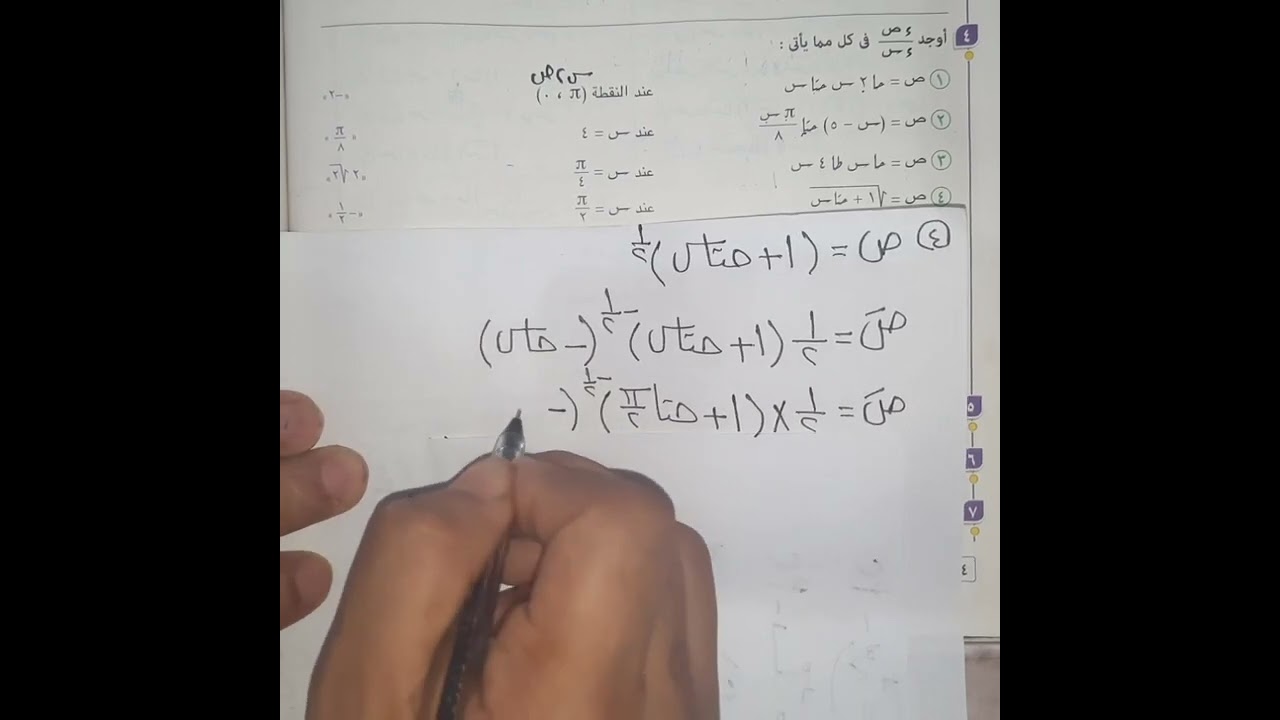 ٤ أوجد ءص/ءس فى كل مما يأتى :
س ، ص
١ ص = ما٢ س متاس عند النقطة (π ، ٠) «-٢»
٢ ص = (س - ٥) متا π س/٨ عند س = ٤ «π/٨»
٣ ص = ماس طا٤ س عند س = π/٤
٤ ص = √(١ + متاس) عند س = π/٢ «-١/٢»
٤ ص = (١ + متاس)^١/٢
صَ = ١/٢ (١ + متاس)^-١/٢ (- ماس)
صَ = ١/٢ × (١ + متا π/٢)^-١/٢ (-
٥
٦
٧
٤